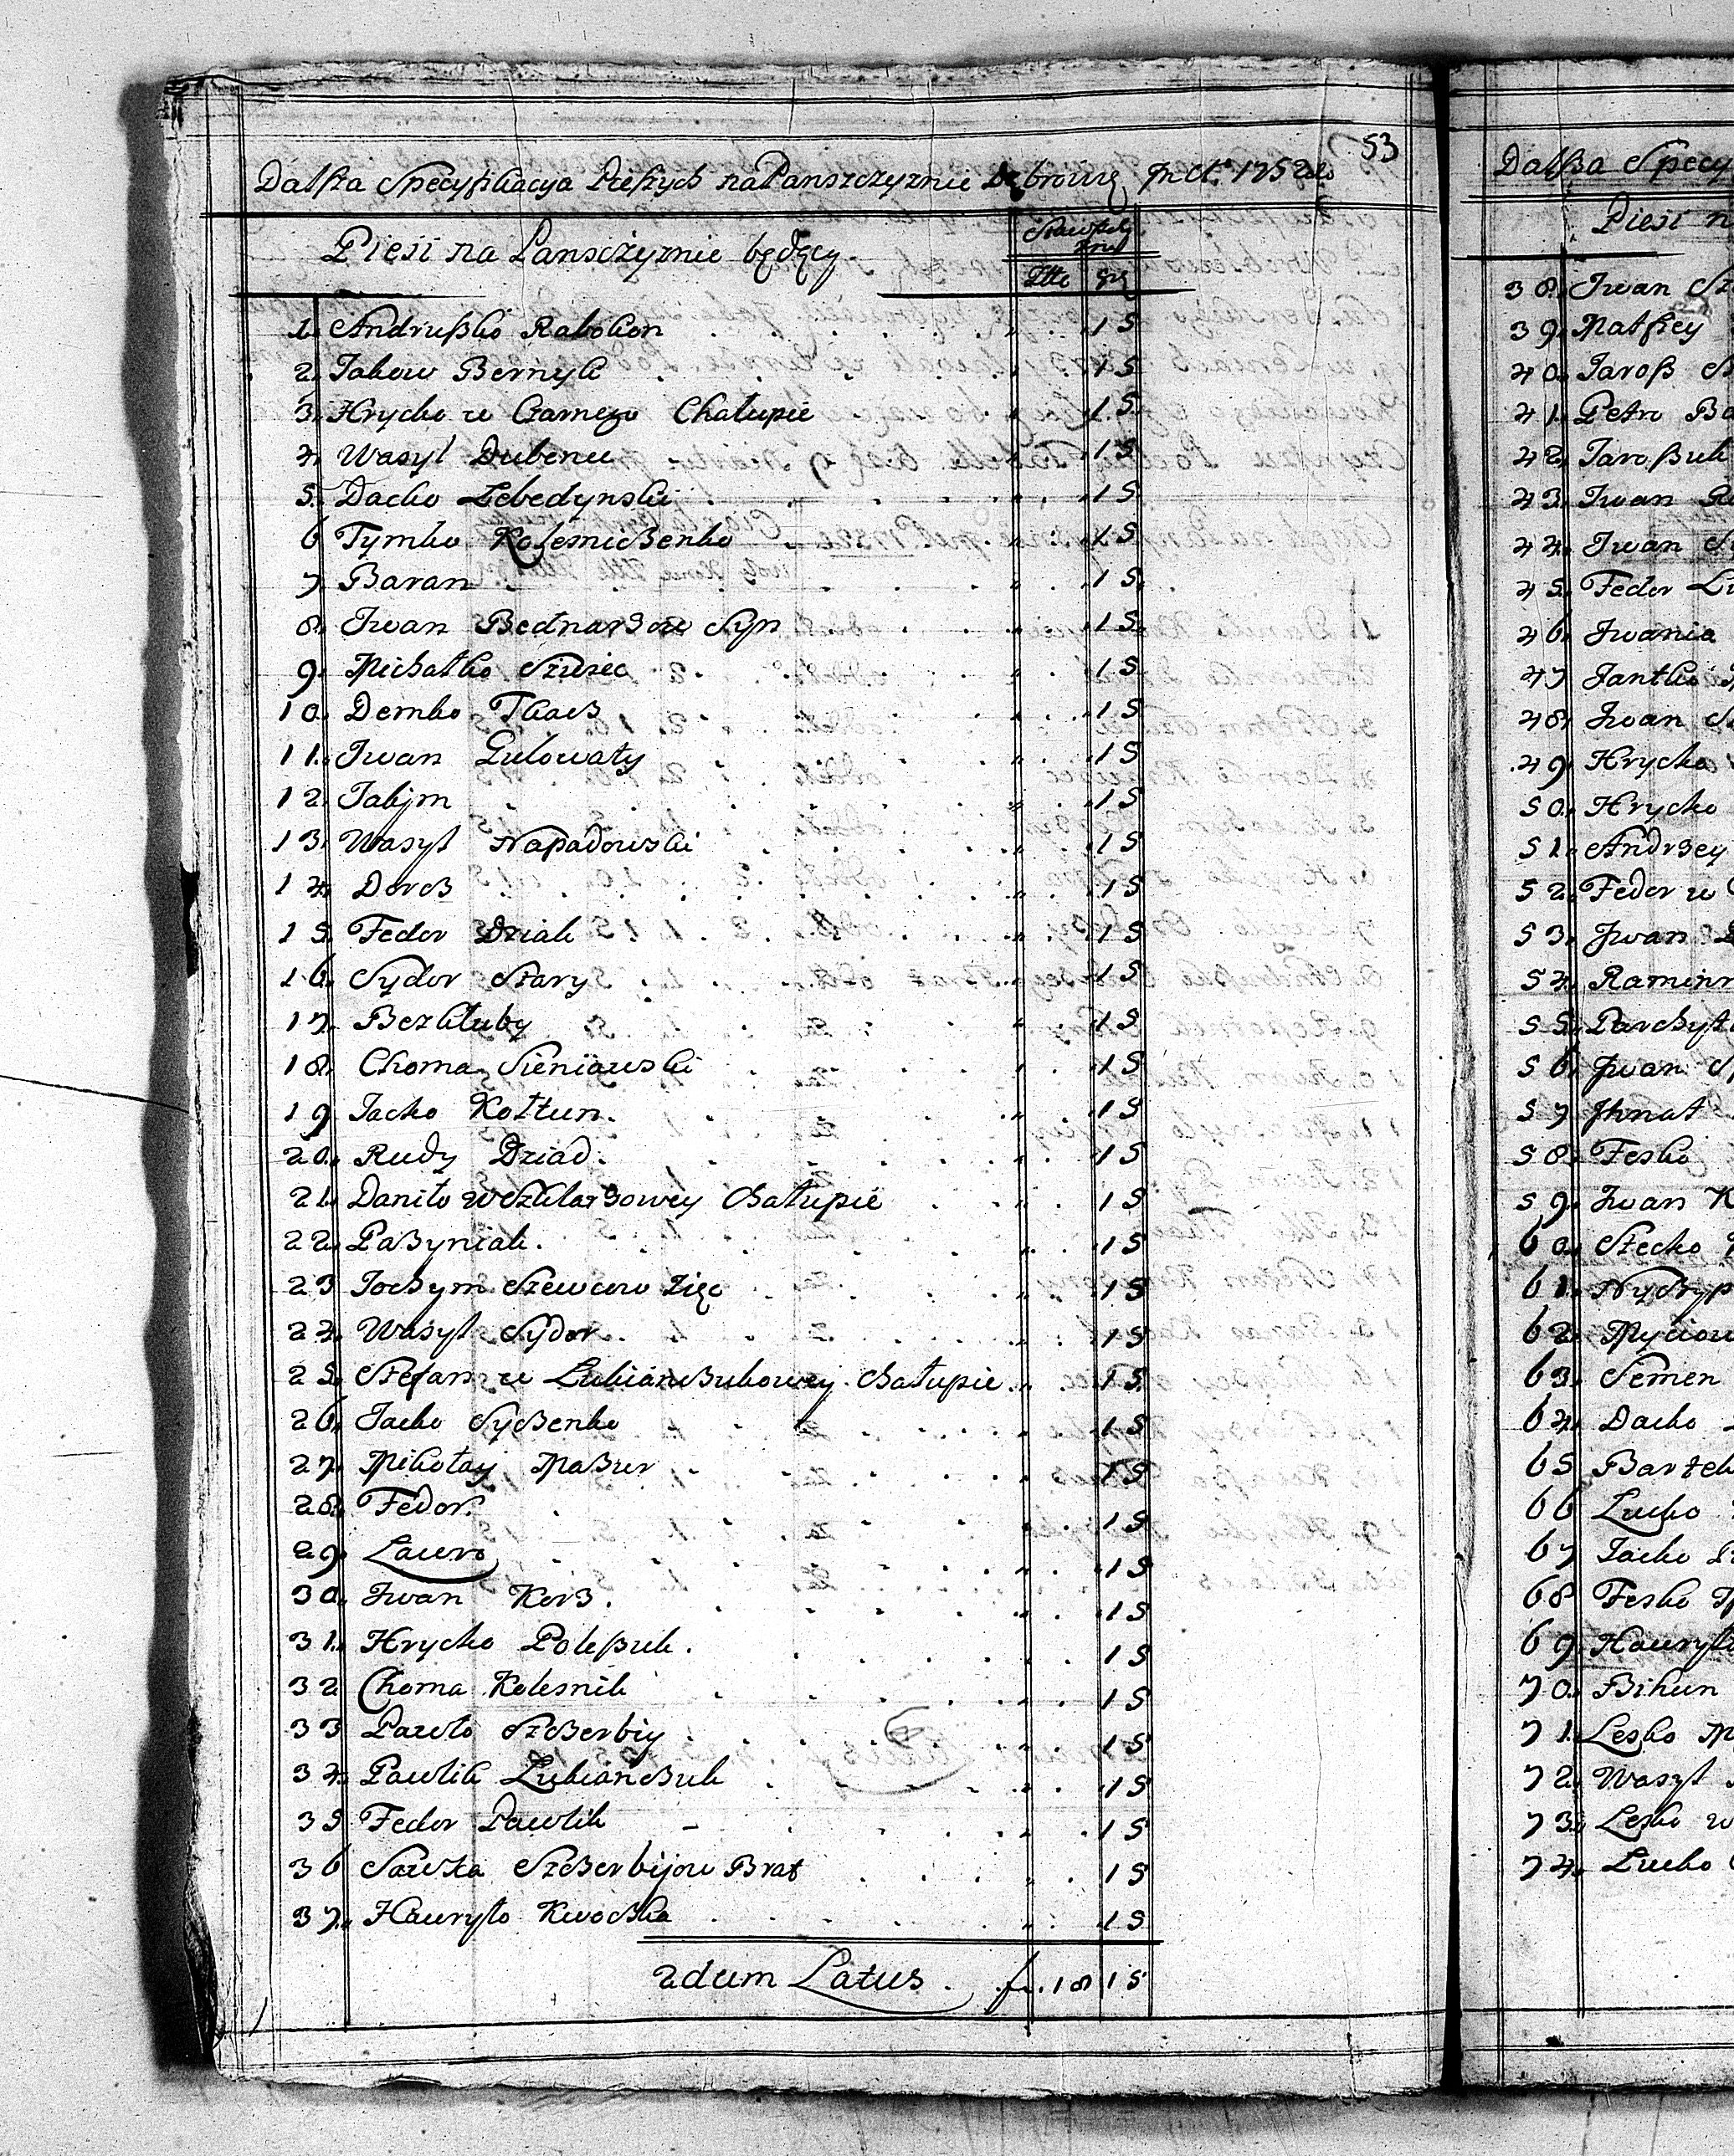 53
Dalsza Specyfikacya Pieszych na Panszczyznie Dębowię 1752do
Pieśi na Panszczyznie będęcy.
Złte grę
1. Andruszko Rabokon 1 5
2. Jakow Bernyk 1 5
3. Hrycko w Czarnego Chałupie 1 5
4. Wasyl Dubeniec 1 5
5. Dacko Lebedynski 1 5
6 Tymko Kolesniczenko 1 5
7. Baran 1 5
8. Iwan Bednarzow Syn 1 5
9. Michałko Szwiec 1 5
10. Demko Tkacz 1 5
11. Iwan Gulowaty 1 5
12. Jakym 1 5
13. Wasyl Napadowski 1 5
14. Dorcz 1 5
15. Fedor Dziak 1 5
16. Sydor Stary 1 5
17. Bezkłuby 1 5
18. Choma Sieniawski 1 5
19 Jacko Kołtun. 1 5
20. Rudy Dziad. 1 5
21. Daniło w Szklarzowey Chałupie 1 5
22. Paszyniak. 1 5
23 Jochym Szewcow Zięc 1 5
24. Wasyl Sydor. 1 5
25. Stefan w Lubianczukowey Chałupie 1 5
26. Jacko Syczenko 1 5
27. Mikołay Mazur 1 5
28. Fedor. 1 5
29. Lawro 1 5
30. Iwan Korz. 1 5
31. Hrycko Poleszuk. 1 5
32 Choma Kolesnik 1 5
33 Pawło Szczerbiy 1 5
34. Pawlik Lubianczuk 1 5
35 Fedor Pawlik 1 5
36 Sawka Szczerbijow Brat 1 5
37. Hawryło Kwoczka 1 5
2dum Latus. f. 18 15
Dalsza Specy
Pieśi n
38. Iwan
39. Matfiey
40. Jarosz
41. Petro
42. Jaroszuk
43. Iwan
44. Iwan
45. Fedor
46. Iwania
47 Jantko
48. Iwan
49. Hrycko
50. Hrycko
51. Andrzey
52. Fedor w
53. Iwan
54.
55.
56. Iwan
57 Ihnat
58. Fesko
59. Iwan
60. Stecko
61.
62.
63. Semen
64. Dacko
65
66 Lucko
67 Jacko
68 Fesko
69. Hawryło
70. Bihun
71. Lesko
72. Wasyl
73. Lesko w
74. Lucko